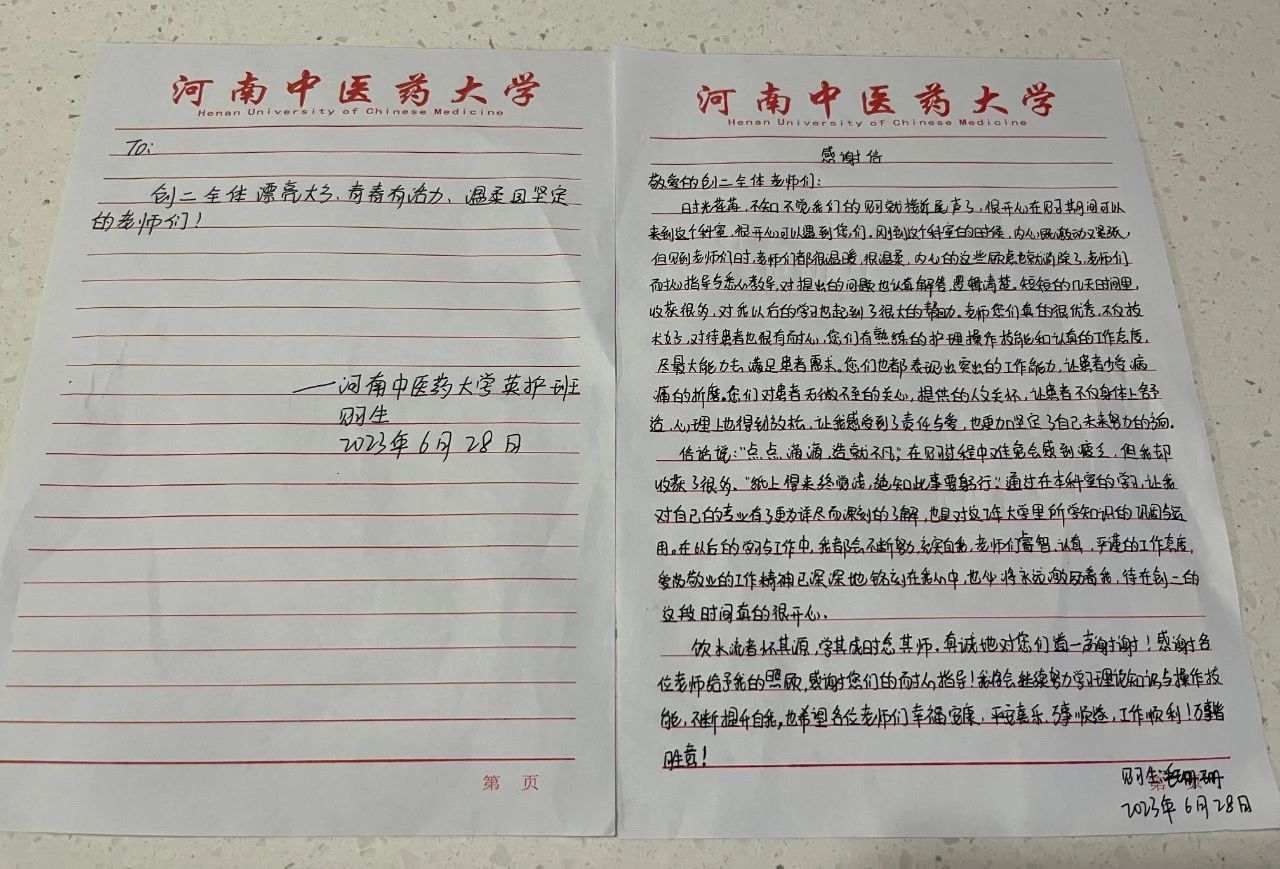 河南中医药大学
Henan University of Chinese Medicine
To:
创二全体漂亮大方、青春有活力、温柔且坚定
的老师们!
——河南中医药大学英护班
见习生
2023年6月28日
第 页
河南中医药大学
Henan University of Chinese Medicine
感谢信
敬爱的创二全体老师们:
时光荏苒,不知不觉我们的见习就接近尾声了,很开心在见习期间可以
来到这个科室,很开心可以遇到您们。刚到这个科室的时候,内心既激动又紧张,
但见到老师们时,老师们都很温暖,很温柔,内心的这些顾虑也就消除了,老师们
耐心指导与悉心教导,对提出的问题也认真解答,逻辑清楚。短短的几天时间里,
收获很多,对我以后的学习也起到了很大的帮助。老师您们真的很优秀,不仅技
术好,对待患者也很有耐心,您们有熟练的护理操作技能和认真的工作态度,
尽最大能力去满足患者需求。您们也都表现出突出的工作能力,让患者少受病
痛的折磨。您们对患者无微不至的关心,提供的人文关怀,让患者不仅身体上舒
适,心理上也得到放松,让我感受到了责任与爱,也更加坚定了自己未来努力的方向。
俗话说:“点点滴滴,造就不凡;在见习过程中难免会感到疲乏,但我却
收获了很多、“纸上得来终觉浅,绝知此事要躬行”:通过在本科室的学习,让我
对自己的专业有了更为详尽而深刻的了解,也是对这几年大学里所学知识的巩固与运
用。在以后的学习与工作中,我都会不断努力,充实自我,老师们睿智、认真、严谨的工作态度,
爱岗敬业的工作精神已深深地铭刻在我心中,也必将永远激励着我,待在创二的
这段时间真的很开心。
饮水流者怀其源,学其成时念其师。真诚地对您们道一声谢谢!感谢各
位老师给予我的照顾,感谢您们的耐心指导!我将会继续努力学习理论知识与操作技
能,不断提升自我,也希望各位老师们幸福安康,平安喜乐,万事顺遂,工作顺利!万事皆
胜意!
见习生
2023年6月28日